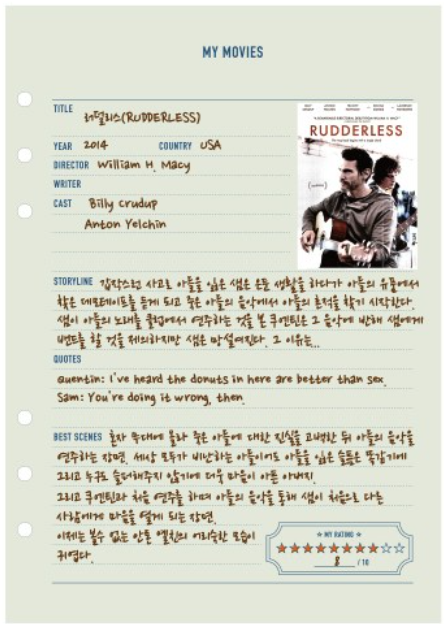 MY MOVIES
TITLE 러덜리스(RUDDERLESS)
YEAR 2014 COUNTRY USA
DIRECTOR William H. Macy
WRITER
CAST Billy Crudup
Anton Yelchin
RUDDERLESS
STORYLINE 갑작스런 사고로 아들을 잃은 샘은 은둔 생활을 하다가 아들의 유품에서
찾은 데모테이프를 듣게 되고 죽은 아들의 음악에서 아들의 흔적을 찾기 시작한다.
샘이 아들의 노래를 클럽에서 연주하는 것을 본 쿠엔틴은 그 음악에 반해 샘에게
밴드를 할 것을 제의하지만 샘은 망설여진다. 그 이유는...
QUOTES
Quentin: I've heard the donuts in here are better than sex.
Sam: You're doing it wrong, then.
BEST SCENES 혼자 무대에 올라 죽은 아들에 대한 진실을 고백한 뒤 아들의 음악을
연주하는 장면. 세상 모두가 비난하는 아들이어도 아들을 잃은 슬픔은 똑같기에
그리고 누구도 슬퍼해주지 않기에 더욱 마음이 아픈 아버지.
그리고 쿠엔틴과 처음 연주를 하며 아들의 음악을 통해 샘이 처음으로 다른
사람에게 마음을 열게 되는 장면.
이제는 볼수 없는 안톤 옐친의 어리숙한 모습이
귀엽다.
★ MY RATING ★
★★★★★★★★☆☆
8 / 10